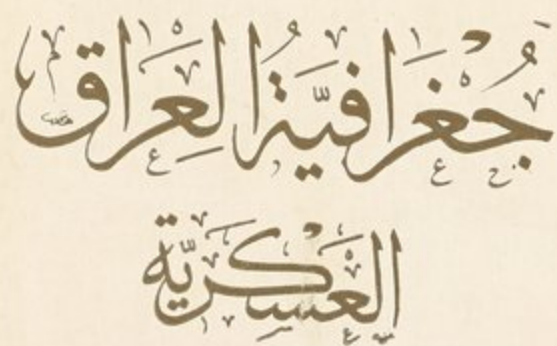 جُغرَافِيَّةُ العِرَاق
العَسكَرِيَّة